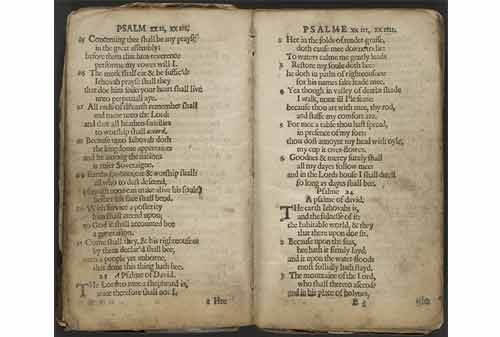 PSALM xxii, xxiii.
25 Concerning thee shall be my prayse
in the great assembly:
before them that him reverence
performe my vowes will I.
26 The meek shall eat & be suffic'd:
Iehovah prayse shall they
that doe him seek: your heart shall live
unto perpetuall aye.
27 All ends of th'earth remember shall
and turne unto the Lord:
and thee all heathen-families
to worship shall accord.
28 Because unto Iehovah doth
the kingdome appertaine:
and he among the nations
is ruler Soveraigne.
29 Earths fat-ones, eat & worship shall:
all who to dust descend,
(though none can make alive his soule)
before his face shall bend.
30 With service a posterity
him shall attend upon;
to God it shall accounted bee
a generation.
31 Come shall they, & his righteousnes
by them declar'd shall bee,
unto a people yet unborne,
that done this thing hath hee.
23 A Psalme of David.
THe Lord to mee a shepheard is,
want therefore shall not I.
2 Hee
PSALME xxiii, xxiiii.
2 Hee in the folds of tender-grasse,
doth cause mee downe to lie:
To waters calme me gently leads
3 Restore my soule doth hee:
he doth in paths of righteousnes:
for his names sake leade mee.
4 Yea though in valley of deaths shade
I walk, none ill I'le feare:
because thou art with mee, thy rod,
and staffe my comfort are.
5 For mee a table thou hast spread,
in presence of my foes:
thou dost annoynt my head with oyle,
my cup it over-flowes.
6 Goodnes & mercy surely shall
all my dayes follow mee:
and in the Lords house I shall dwell
so long as dayes shall bee.
Psalme 24
A psalme of david.
THe earth Iehovahs is,
and the fulnesse of it:
the habitable world, & they
that there upon doe sit.
2 Because upon the seas,
hee hath it firmly layd:
and it upon the water-floods
most sollidly hath stayd.
3 The mountaine of the Lord,
who shall thereto ascend?
and in his place of holynes,
E